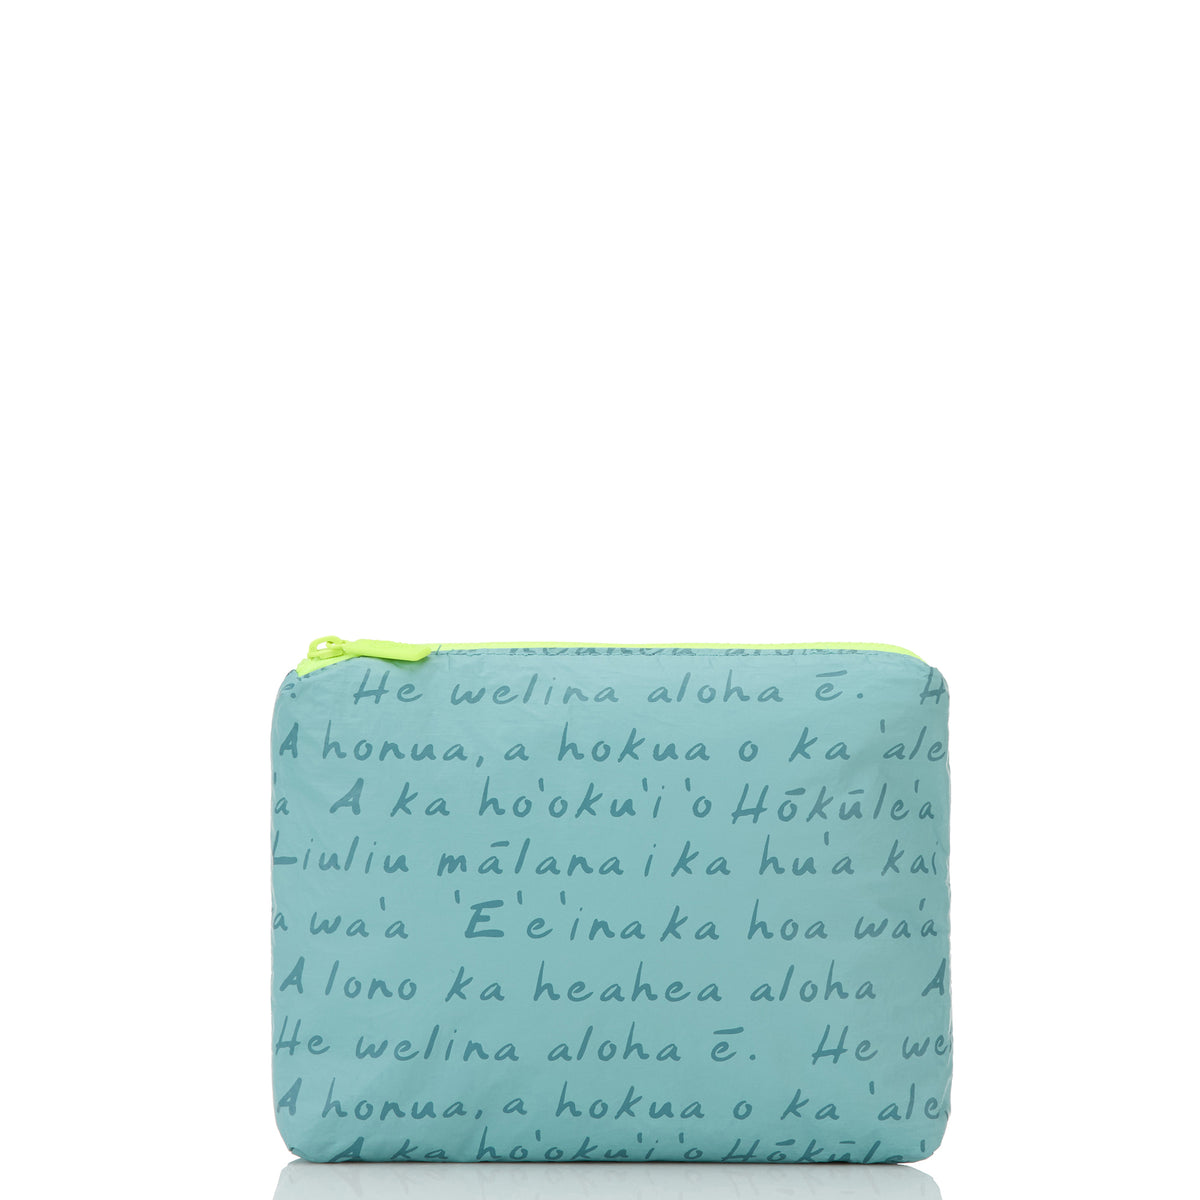 heahea aloha
. He welina aloha ē. H
A honua, a hokua o ka ʻale
ʻa A ka hoʻokuʻi ʻo Hōkūleʻa
Liuliu mālana i ka huʻa kai
a waʻa ʻEʻeʻina ka hoa waʻa
A lono ka heahea aloha A
He welina aloha ē. He we
A honua, a hokua o ka ʻale
A ka hoʻokuʻi ʻo Hōkūleʻa